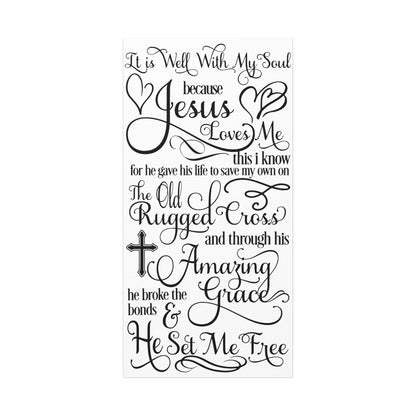 It is Well With My Soul
because
Jesus
Loves Me
this i know
for he gave his life to save my own on
The Old
Rugged Cross
and through his
Amazing
Grace
he broke the
bonds &
He Set Me Free